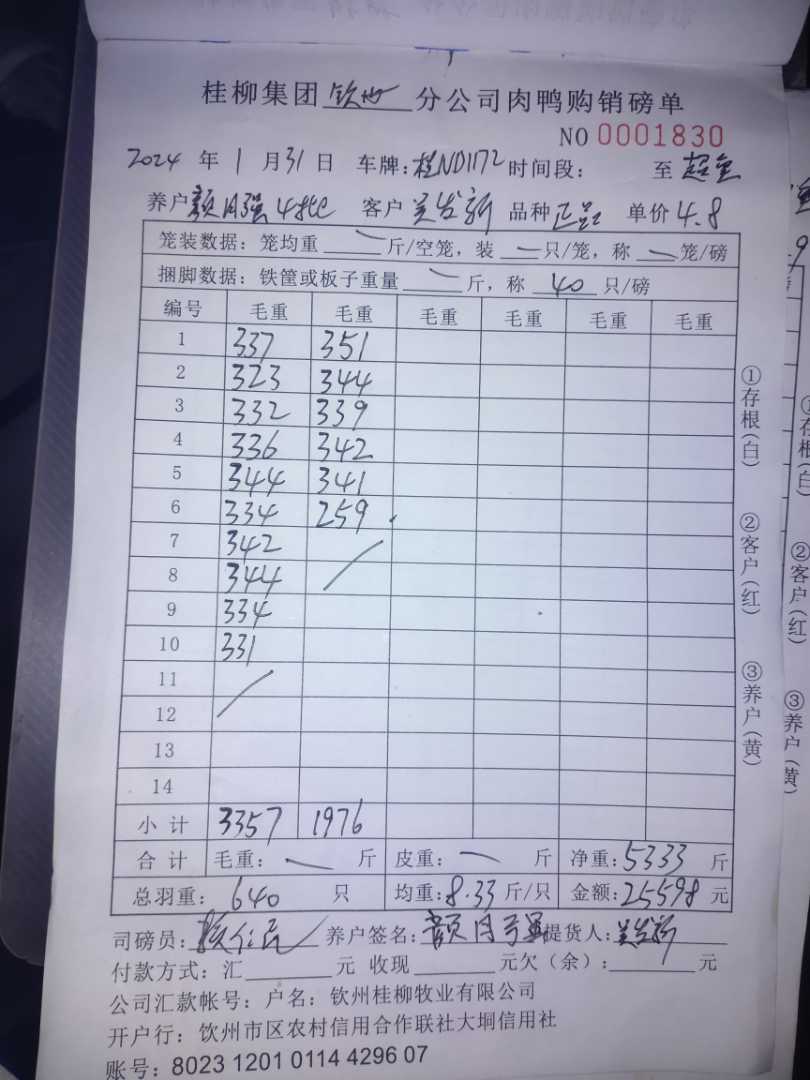 桂柳集团钦州分公司肉鸭购销磅单
NO 0001830
2024 年 1 月 31 日 车牌:桂ND1172 时间段: 至
养户 颜月强 4批 客户 吴发新 品种 正品 单价 4.8
笼装数据:笼均重 — 斤/空笼,装 — 只/笼,称 — 笼/磅
捆脚数据:铁筐或板子重量 — 斤,称 40 只/磅
编号 毛重 毛重 毛重 毛重 毛重 毛重
1 337 351
2 323 344
3 332 339
4 336 342
5 344 341
6 334 259
7 342
8 344
9 334
10 331
11
12
13
14
小计 3357 1976
合计 毛重: — 斤 皮重: — 斤 净重:5333 斤
总羽重: 640 只 均重:8.33 斤/只 金额:25598 元
司磅员: 养户签名:颜月强 提货人:吴发新
付款方式:汇 元 收现 元欠(余): 元
公司汇款帐号:户名:钦州桂柳牧业有限公司
开户行:钦州市区农村信用合作联社大垌信用社
账号:8023 1201 0114 4296 07
①存根(白)
②客户(红)
③养户(黄)
②客户(红)
③养户(黄)